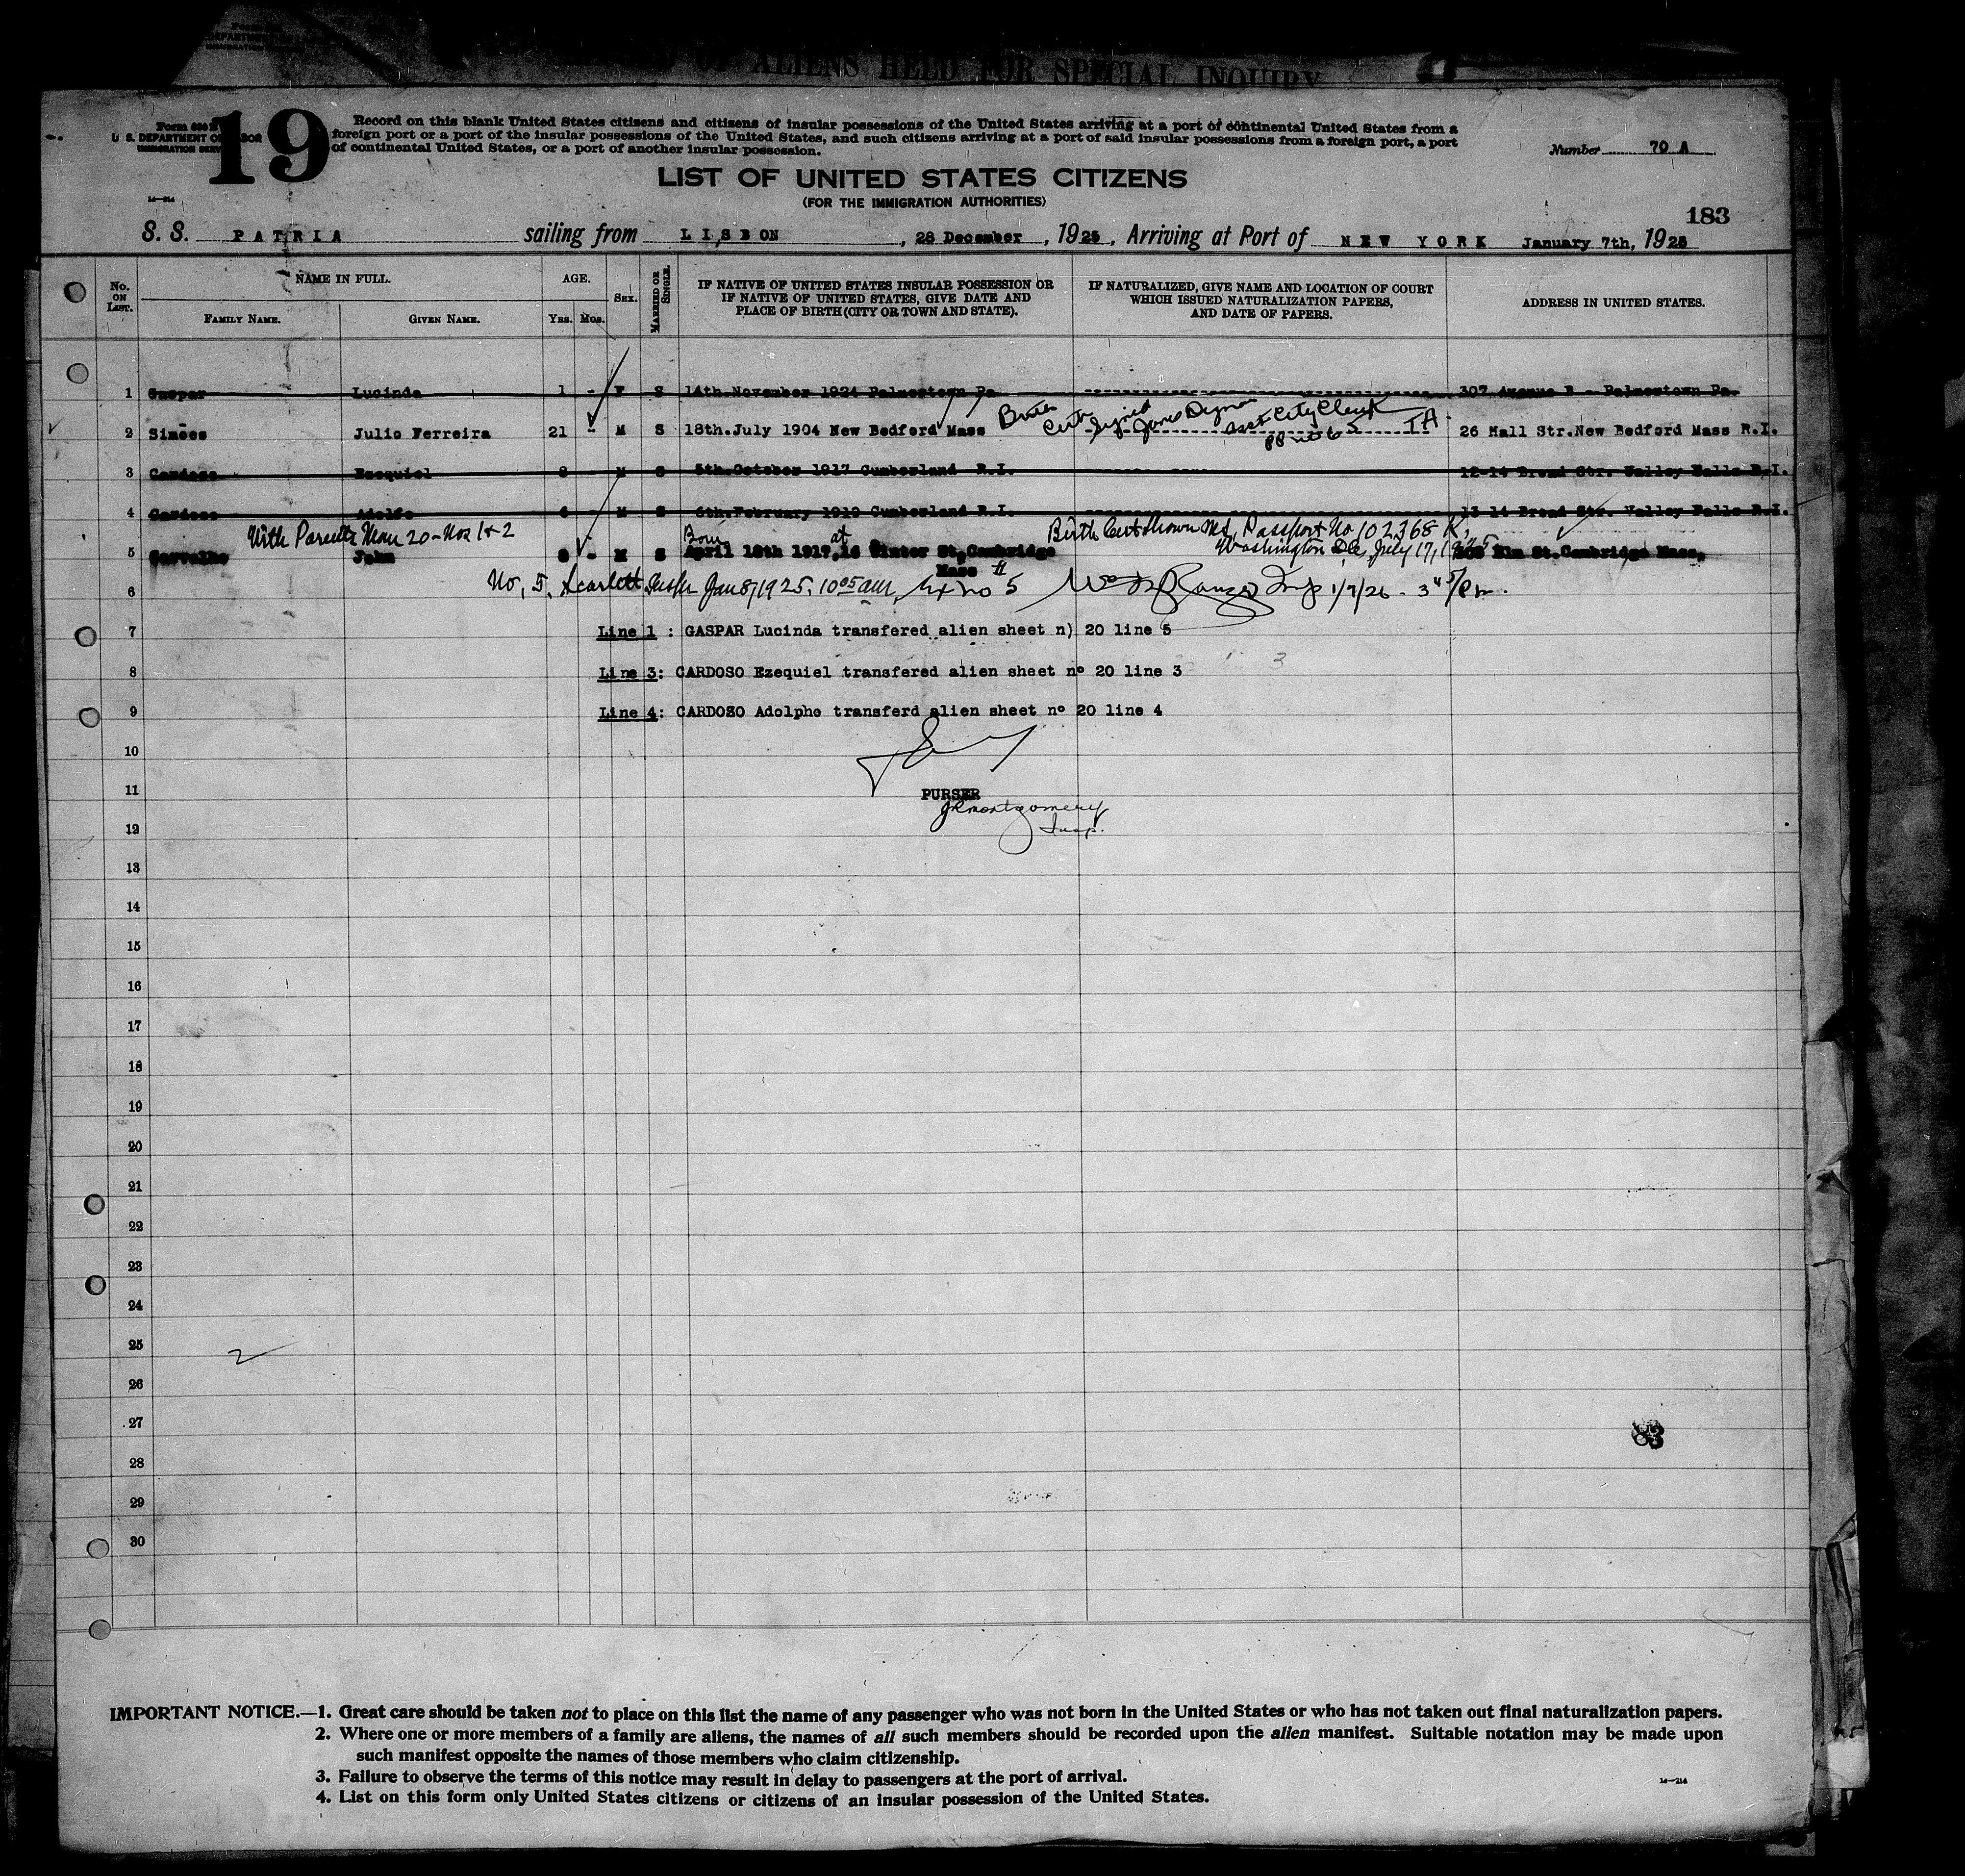 OF ALIENS HELD FOR SPECIAL INQUIRY
19
U. S. DEPARTMENT OF LABOR
IMMIGRATION SERVICE
Record on this blank United States citizens and citizens of insular possessions of the United States arriving at a port of continental United States from a
foreign port or a port of the insular possessions of the United States, and such citizens arriving at a port of said insular possessions from a foreign port, a port
of continental United States, or a port of another insular possession.
Number 70 A
LIST OF UNITED STATES CITIZENS
(FOR THE IMMIGRATION AUTHORITIES)
183
S. S. PATRIA sailing from LISBON, 28 December, 1925, Arriving at Port of NEW YORK January 7th, 1926
No. ON LIST. NAME IN FULL. AGE. SEX. MARRIED OR SINGLE. IF NATIVE OF UNITED STATES INSULAR POSSESSION OR IF NATIVE OF UNITED STATES, GIVE DATE AND PLACE OF BIRTH (CITY OR TOWN AND STATE). IF NATURALIZED, GIVE NAME AND LOCATION OF COURT WHICH ISSUED NATURALIZATION PAPERS, AND DATE OF PAPERS. ADDRESS IN UNITED STATES.
FAMILY NAME. GIVEN NAME. YRS. MOS.
1 Gaspar Lucinda 1 - F S 14th.November 1924 Palmertown Pa 307 Avenue B - Palmertown Pa.
Birth Cert Signed Asst City Clerk
2 Simões Julio Ferreira 21 - M S 18th.July 1904 New Bedford Mass 26 Hall Str.New Bedford Mass R.I.
3 Cardoso Ezequiel 8 M S 5th.October 1917 Cumberland R.I. 12-14 Broad Str. Valley Falls R.I.
4 Cardoso Adolfo 6 M S 6th.February 1919 Cumberland R.I. 12 14 Broad Str. Valley Falls R.I.
With Parents Man 20 - Nos 1 & 2 Born at Birth Cert Shown Me, Passport No 102368 K,
Washington DC, July 17, 1925
5 Carvalho John 8 - M S April 18th 1917, 16 Winter St, Cambridge Mass Elm St. Cambridge Mass,
6 No, 5, Scarlett Jan 8, 1925, 10 05 am, No 5 Insp 1/7/26 - Pm.
7 Line 1 : GASPAR Lucinda transfered alien sheet n) 20 line 5
8 Line 3: CARDOSO Ezequiel transfered alien sheet nº 20 line 3
9 Line 4: CARDOSO Adolpho transferd alien sheet nº 20 line 4
10
11 PURSER
JRMontgomery
12 Insp.
13
14
15
16
17
18
19
20
21
22
23
24
25 2
26
27 83
28
29
30
IMPORTANT NOTICE.—1. Great care should be taken not to place on this list the name of any passenger who was not born in the United States or who has not taken out final naturalization papers.
2. Where one or more members of a family are aliens, the names of all such members should be recorded upon the alien manifest. Suitable notation may be made upon
such manifest opposite the names of those members who claim citizenship.
3. Failure to observe the terms of this notice may result in delay to passengers at the port of arrival.
4. List on this form only United States citizens or citizens of an insular possession of the United States.